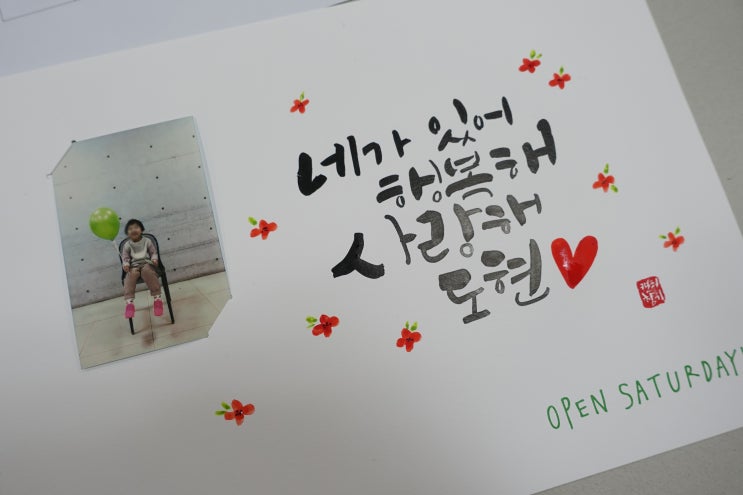 네가 있어
행복해
사랑해
도현
OPEN SATURDAY!